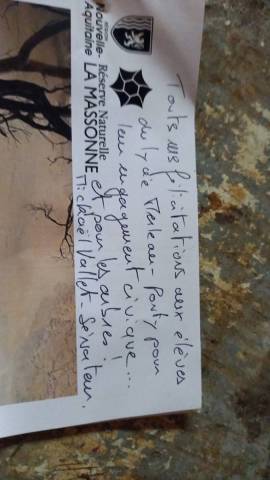 RÉGION
Nouvelle-
Aquitaine
Réserve Naturelle
LA MASSONNE
Toutes mes félicitations aux élèves
du lycée Merleau-Ponty pour
leur engagement civique...
et pour les arbres !
Mickaël Vallet - Sénateur.